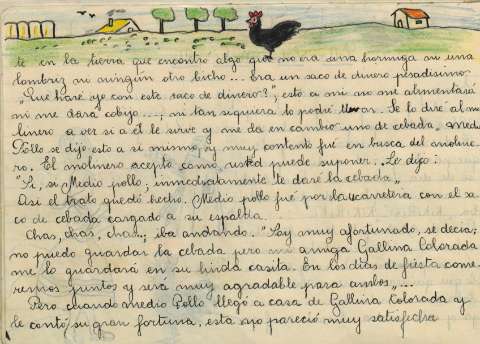 te en la tierra que encontro algo que no era una hormiga ni una
lombriz ni ningún otro bicho... Era un saco de dinero pesadisimo.
"¿Que haré yo con este saco de dinero?", esto a mi no me alimentará
ni me dará cobijo...; ni tan siquiera lo podré llevar. Se lo diré al mo-
linero a ver si a el le sirve y me da en cambio uno de cebada. Medio
Pollo se dijo esto a si mismo, y muy contento fué en busca del moline-
ro. El molinero acepto como usted puede suponer. Le dijo:
"Si, si Medio pollo; inmediatamente te daré la cebada".
Asi el trato quedó hecho. Medio pollo fué por la carretera con el sa-
co de cebada cargado a su espalda.
Chas, chas, chas... iba andando. "Soy muy afortunado, se decia;
no puedo guardar la cebada pero mi amiga Gallina Colorada
me lo guardará en su linda casita. En los dias de fiesta come-
remos juntos y será muy agradable para ambos"...
Pero cuando medio Pollo llegó a casa de Gallina Colorada y
le contó su gran fortuna, esta no pareció muy satisfecha